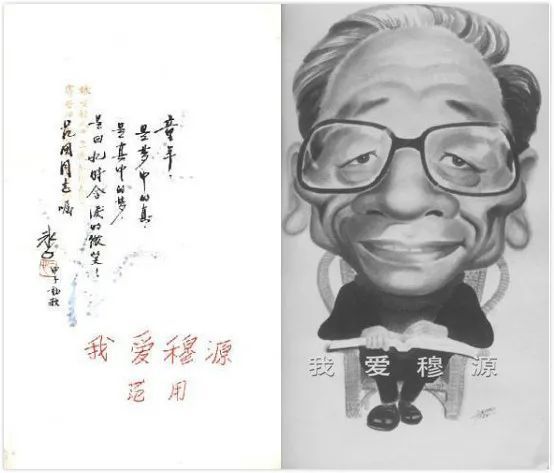 童年，
是夢中的真，
是真中的梦，
是回忆时含淚的微笑！
范用同志嘱
冰心
我爱穆源
范用
我爱穆源